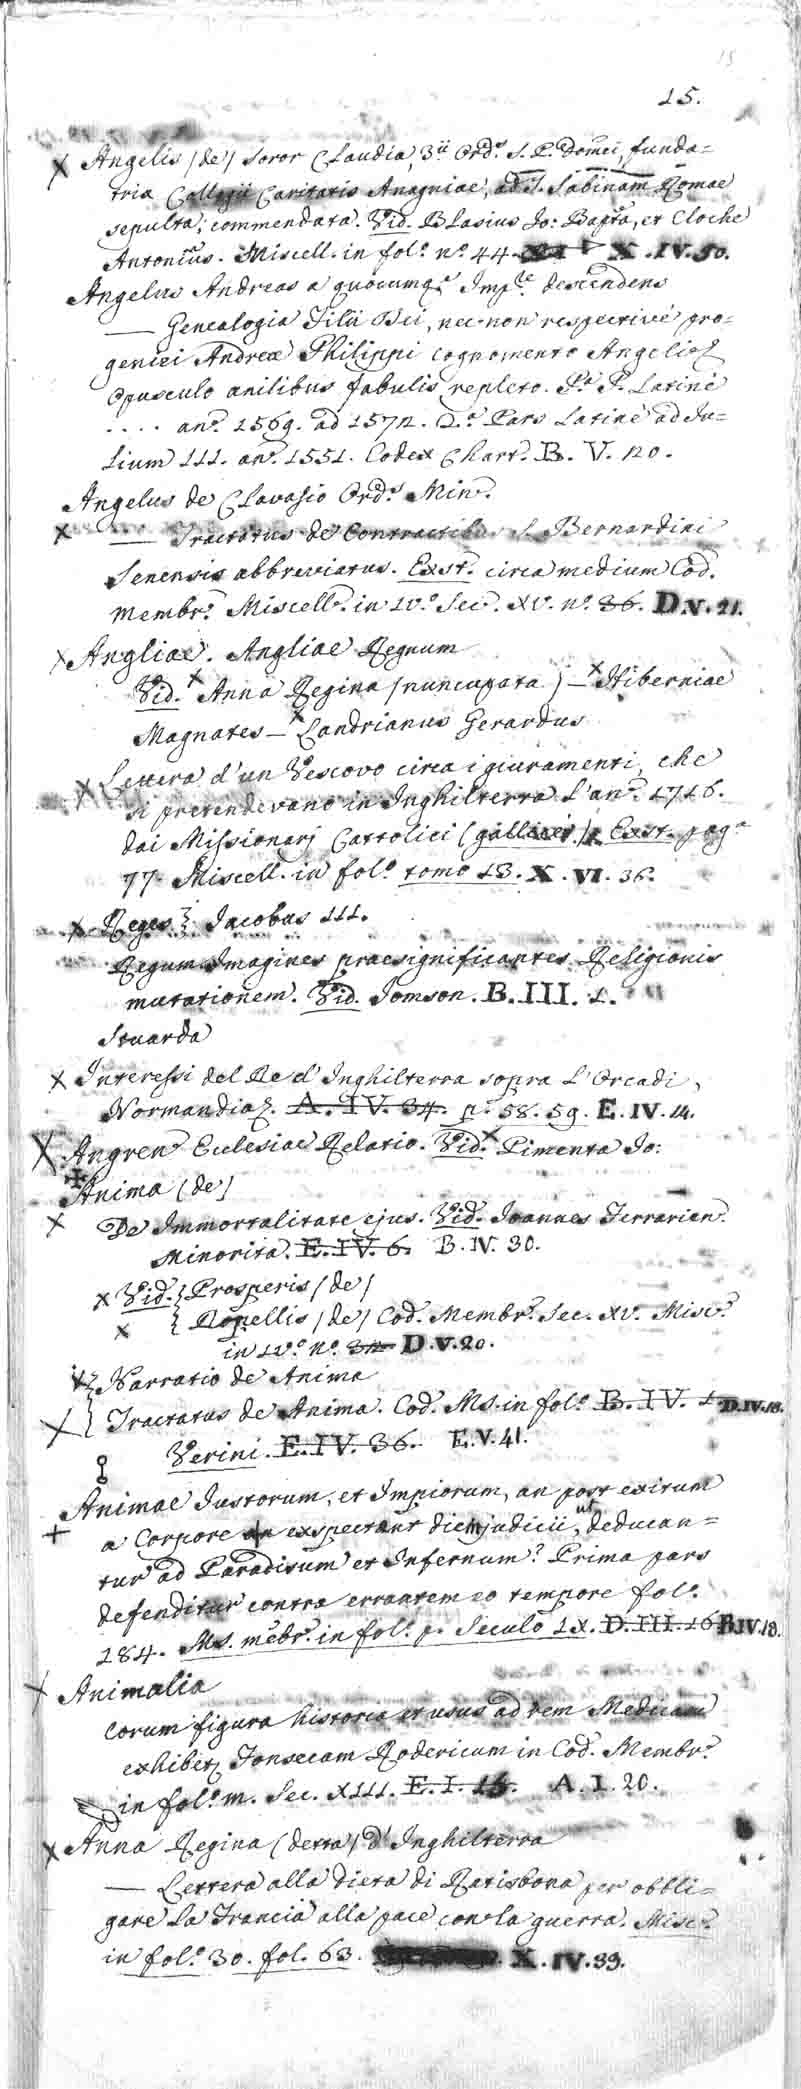 15
15.
Angelis (de) Soror Claudia, 3ii Ord.s S. P. Domci, funda=
trix Collegii Caritatis Anagniae, ad S. Sabinam Romae
sepulta; commendata. Vid. Blasius Jo: Bapta, et Cloche
Antonius. Miscell. in fol.o n.o 44. X. IV. 50.
Angelus Andreas a quocumq.e Imp.te descendens
— Genealogia Filii Dei, nec-non respectivè pro=
geniei Andreæ Philippi cognomento Angelicj
opusculo anilibus fabulis repleto. P.a P. Latinè
.... an.o 1569. ad 1572. 2.a Pars Latinè ad Ju=
lium 111. an.o 1551. Codex Chart. B. V. 20.
Angelus de Clavasio Ord.s Min.
x — Tractatus de Contractibus S. Bernardini
Senensis abbreviatus. Exst. circa medium Cod.
Membr. Miscell. in 4.o Sec. XV. n.o 36. D.V.21.
x Angliae. Angliae Regnum
Vid. x Anna Regina (nuncupata) — x Hiberniae
Magnates — x Landrianus Gerardus
x Lettera d'un Vescovo circa i giuramenti, che
si pretendevano in Inghilterra l'an.o 1716.
dai Missionarj Cattolici (gallicè) Exst. pag.a
77. Miscell. in fol.o tomo 13. X. VI. 36.
x Reges } Jacobus 111.
Regum Imagines praesignificantes Religionis
mutationem. Vid. Jomson. B. III. 1.
Stuarda
x Interessi del Re d'Inghilterra sopra l'Orcadi,
Normandia. A. IV. 34. p. 58. 59. E. IV. 14.
x Angren. Ecclesiae Relatio. Vid. x Pimenta Jo:
Anima (de)
x De Immortalitate ejus. Vid. Joannes Ferrarien.
Minorita. E. IV. 6. B. IV. 30.
x Vid. { Prosperis (de)
x { Ropellis (de) Cod. Membr. Sec. XV. Misc.
in 4.o n.o 32 D.V.20.
x { Narratio de Anima
x { Tractatus de Anima. Cod. Ms. in fol.o B. IV. 1. D.IV.18.
Verini. E. IV. 36. E.V.41.
Animae Justorum, et Impiorum, an post exitum
+ a corpore exspectant diem judicii, ut deducan=
tur ad Paradisum et Infernum? Prima pars
defenditur contra errantem eo tempore fol.o
184. Ms. mēbr. in fol.o p. Seculo IX. D. III. 16 B.IV.18.
x Animalia
eorum figura historia et usus ad rem Medicam
exhibet Fonsecam Rodericum in Cod. Membr.
in fol.o m. Sec. XIII. E. I. 15. A. I. 20.
x Anna Regina (detta) d'Inghilterra
— Lettera alla dieta di Ratisbona per obbli=
gare la Francia alla pace con la guerra. Misc.
in fol.o 30. fol. 63. X. IV. 39.